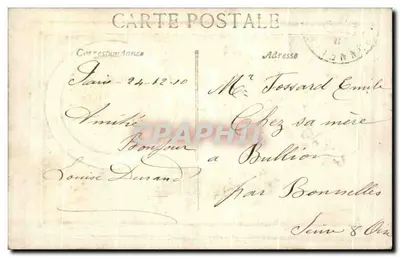 CARTE POSTALE
Correspondance
Adresse
Paris 24-12-10
Amitié
Bonjour
Louise Durand
Mr Fossard Emile
Chez sa mère
a Bullion
par Bonnelles
Seine & Oise
CPAPHIL